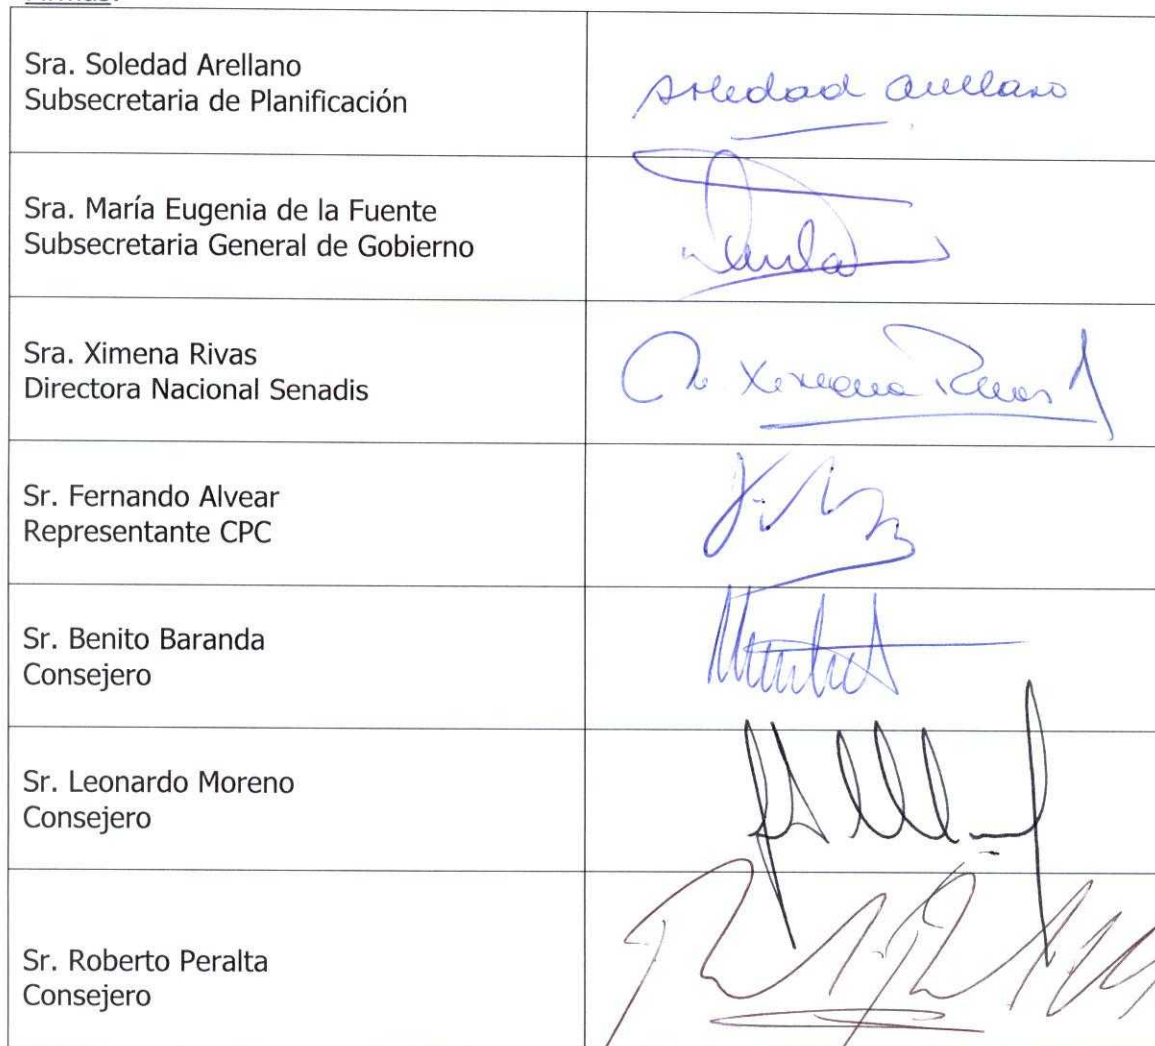 Firmas:
Sra. Soledad Arellano
Subsecretaria de Planificación
Soledad Arellano
Sra. María Eugenia de la Fuente
Subsecretaria General de Gobierno
Sra. Ximena Rivas
Directora Nacional Senadis
Ximena Rivas
Sr. Fernando Alvear
Representante CPC
Sr. Benito Baranda
Consejero
Sr. Leonardo Moreno
Consejero
Sr. Roberto Peralta
Consejero